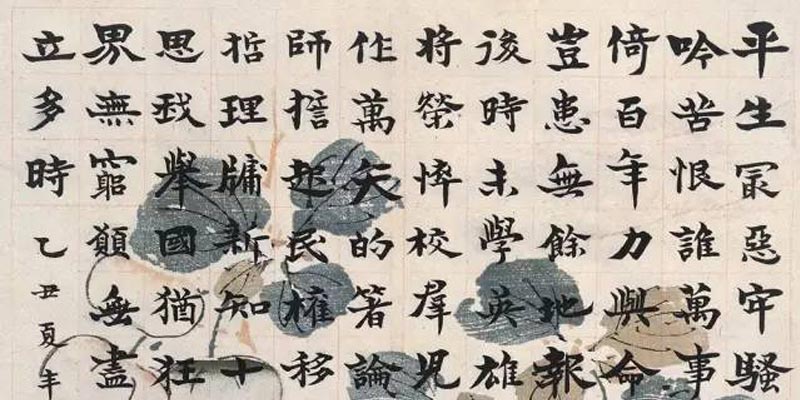 平生冣惡牢騷
吟苦恨誰萬事
倚百年力與命
豈患無餘地報
後時未學英雄
將榮悴校羣兒
作萬矢的著論
師起民權移
哲理牖新知十
思我舉國猶狂
界無窮願無盡
立多時乙丑夏